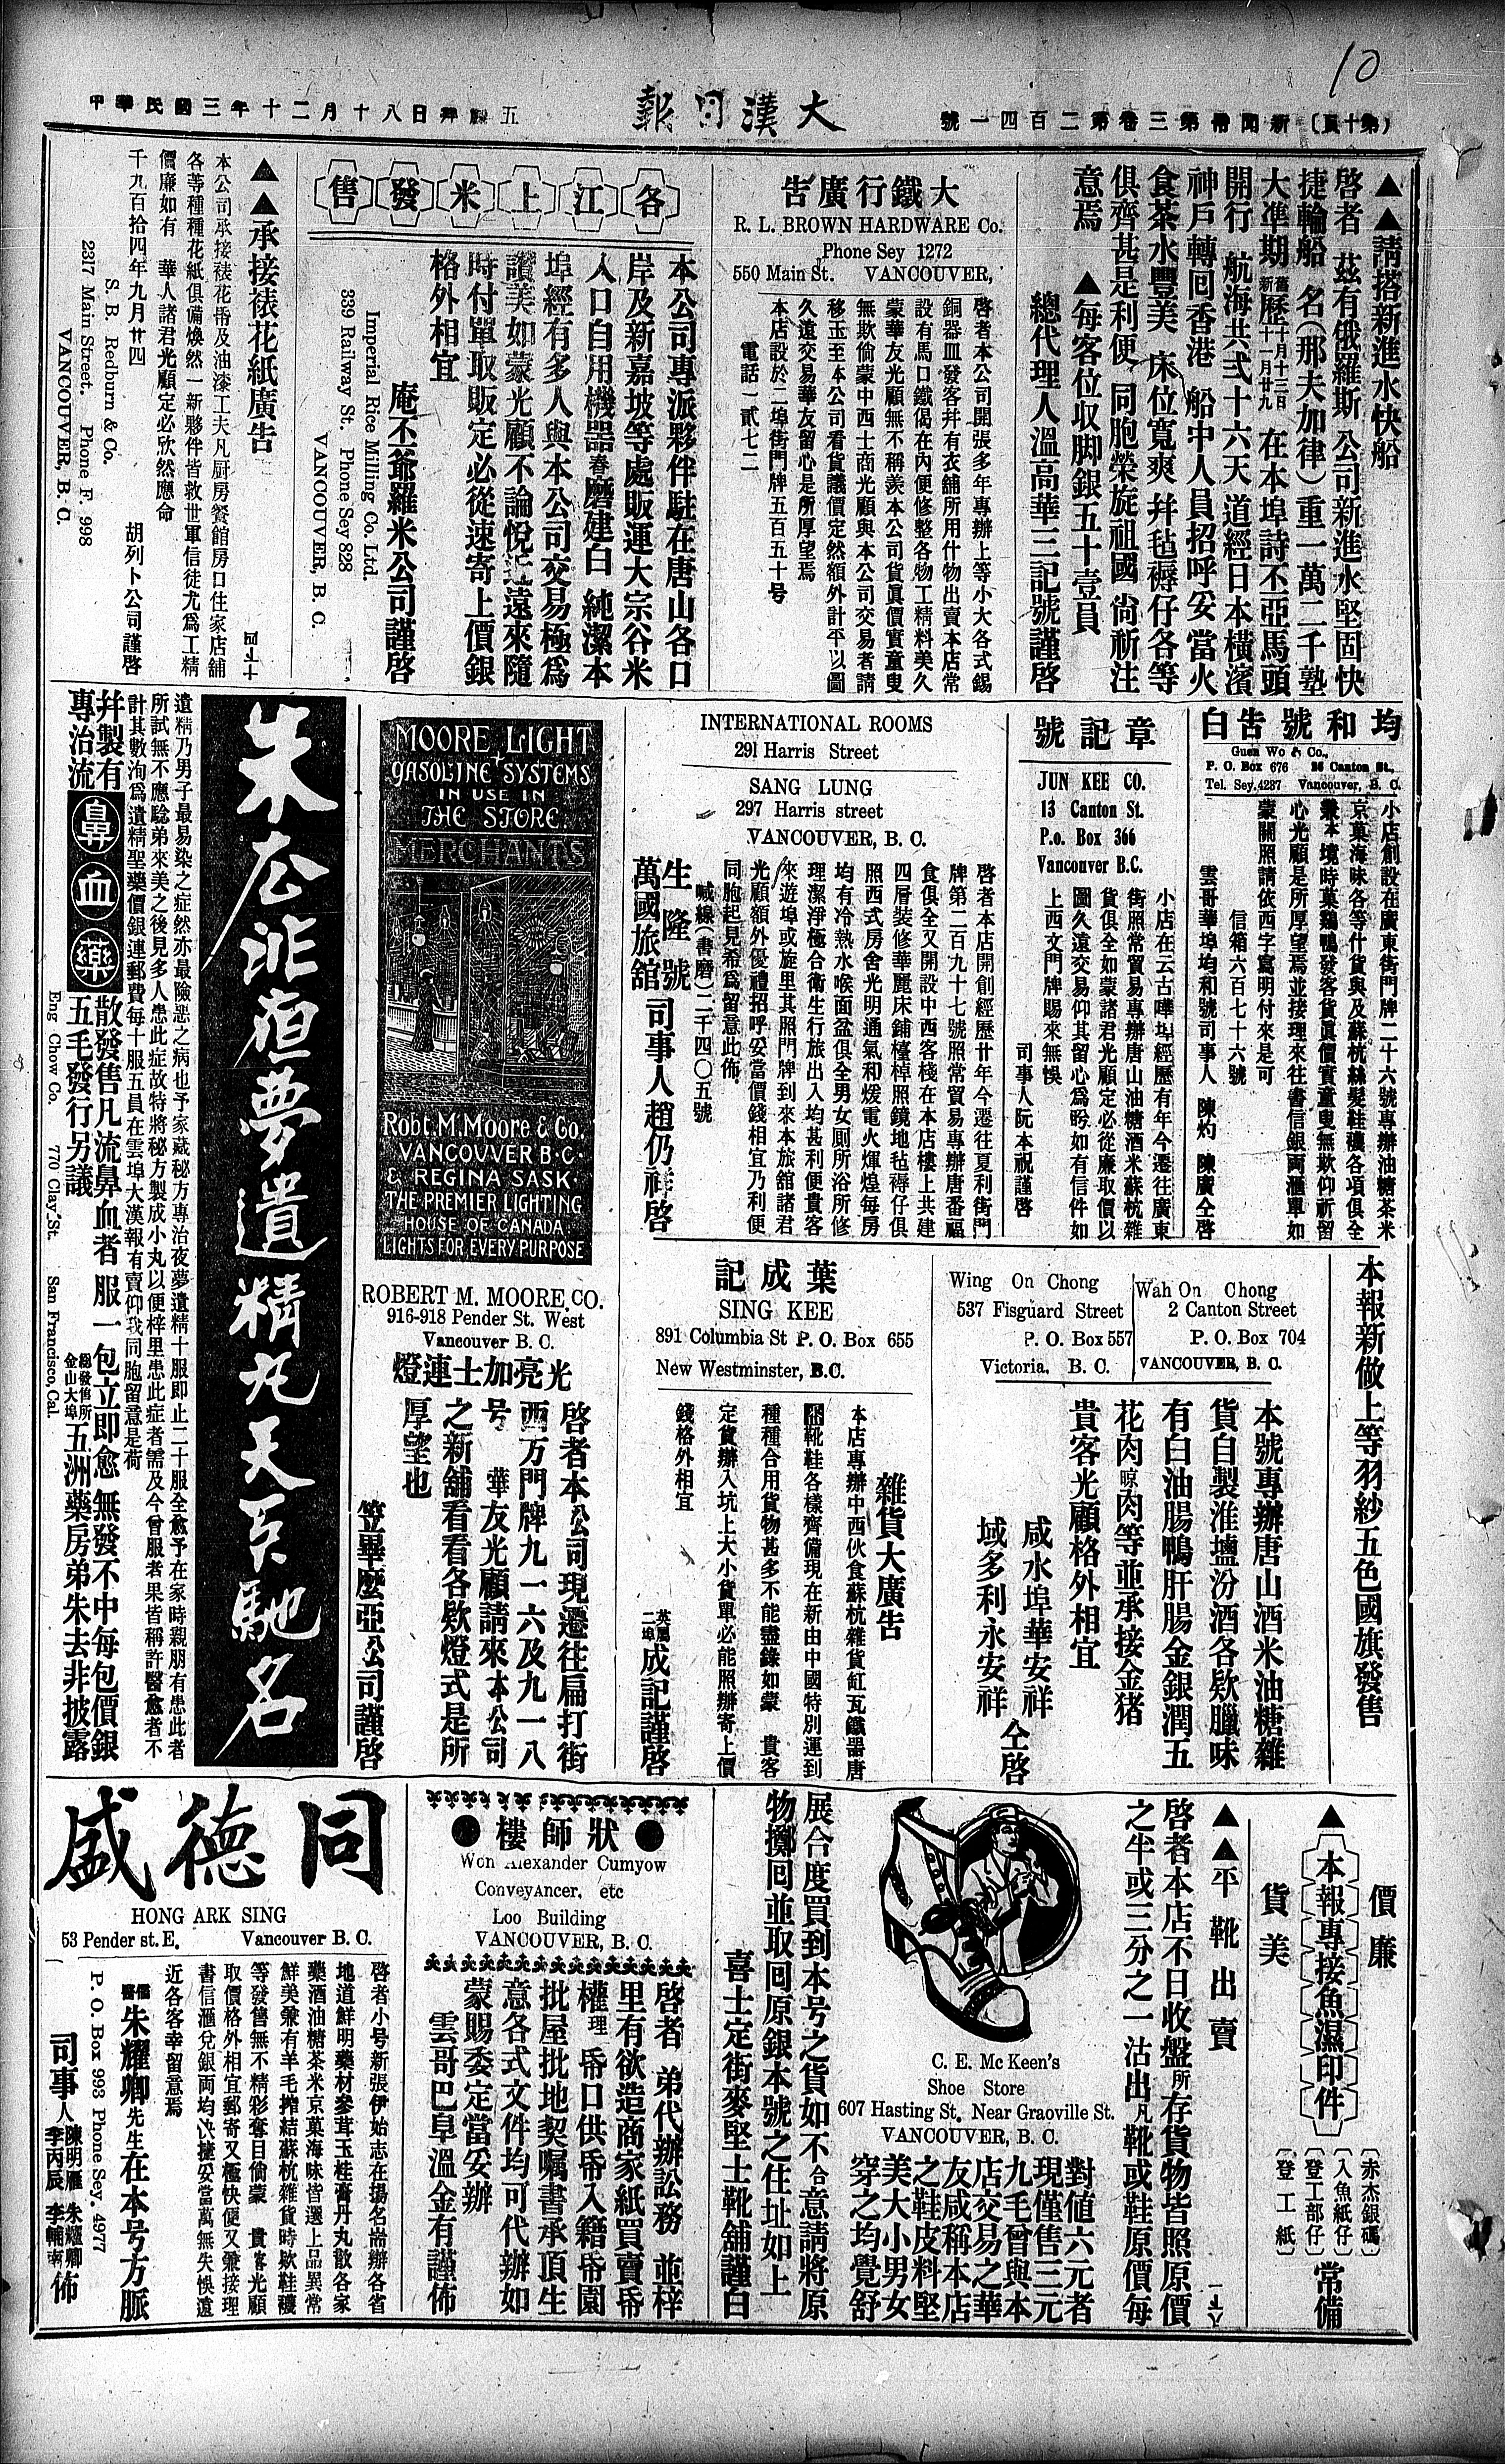 10
（第十頁）新聞帋第三卷第二百四一號
大漢日報
中華民國三年十二月十八日禮拜五
▲▲請搭新進水快船
啓者 茲有俄羅斯 公司新進水堅固快
捷輪船 名（那夫加律）重一萬二千墪
大準期 舊新歷十月十三日十一月廿九 在本埠詩不亞馬頭
開行 航海共弍十六天 道經日本橫濱
神戶轉回香港 船中人員招呼妥當火
食茶水豐美 床位寬爽 幷毡褥仔各等
俱齊甚是利便 同胞榮旋祖國 尙祈注
意焉 ▲每客位收脚銀五十壹員
總代理人溫高華三記號謹啓
大鐵行廣告
R. L. BROWN HARDWARE Co.
Phone Sey 1272
550 Main St. VANCOUVER,
啓者本公司開張多年專辦上等小大各式錫
銅器皿發客幷有衣舖所用什物出賣本店常
設有馬口鐵偈在內便修整各物工精料美久
蒙華友光顧無不稱羨本公司貨眞價實童叟
無欺倘蒙中西士商光顧與本公司交易者請
移玉至本公司看貨議價定然額外計平以圖
久遠交易華友留心是所厚望焉
本店設於二埠街門牌五百五十号
電話一貳七二
各江上米發售
本公司專派夥伴駐在唐山各口
岸及新嘉坡等處販運大宗谷米
入口自用機器舂磨建白 純潔本
埠經有多人與本公司交易極爲
讚美如蒙光顧不論悅近遠來隨
時付單取販定必從速寄上價銀
格外相宜
庵不爺羅米公司謹啓
Imperial Rice Milling Co. Ltd.
339 Railway St. Phone Sey 828
VANCOUVER, B. C.
▲▲承接裱花紙廣告
本公司承接裱花帋及油漆工夫凡厨房餐館房口住家店舖
各等種種花紙俱備煥然一新夥伴皆救世軍信徒尤爲工精
價廉如有 華人諸君光顧定必欣然應命
千九百拾四年九月廿四 胡列卜公司謹啓
S. B. Redburn & Co.
2317 Main Street. Phone F. 998
VANCOUVER, B. C.
均和號告白
Guen Wo & Co.,
P. O. Box 676 26 Canton St.,
Tel. Sey. 4237 Vancouver, B. C.
小店創設在廣東街門牌二十六號專辦油糖茶米
京菓海味各等什貨與及蘇杭絲髮鞋襪各項俱全
兼本境時菓鷄鴨發客貨眞價實童叟無欺仰祈留
心光顧是所厚望焉並接理來往書信銀両滙單如
蒙關照請依西字寫明付來是可
信箱六百七十六號
雲哥華埠均和號司事人 陳灼 陳廣仝啓
章記號
JUN KEE CO.
13 Canton St.
P.o. Box 366
Vanconver B.C.
小店在云古嘩埠經歷有年今遷往廣東
街照常貿易專辦唐山油糖酒米蘇杭雜
貨俱全如蒙諸君光顧定必從廉取價以
圖久遠交易仰其留心爲盼如有信件如
上西文門牌賜來無悞
司事人阮本祝謹啓
INTERNATIONAL ROOMS
291 Harris Street
SANG LUNG
297 Harris street
VANCOUVER, B. C.
啓者本店開創經歷廿年今遷往夏利街門
牌第二百九十七號照常貿易專辦唐番福
食俱全又開設中西客棧在本店樓上共建
四層裝修華麗床鋪檯棹照鏡地毡褥仔俱
照西式房舍光明通氣和煖電火煇煌每房
均有冷熱水喉面盆俱全男女厠所浴所修
理潔淨極合衛生行旅出入均甚利便貴客
來遊埠或旋里其照門牌到來本旅舘諸君
光顧額外優禮招呼妥當價錢相宜乃利便
同胞起見希爲留意此佈
喊線（書磨）二千四〇五號
生隆號
萬國旅舘 司事人趙仍祥啓
MOORE LIGHT
GASOLINE SYSTEMS
IN USE IN
THE STORE.
MERCHANTS
Robt. M. Moore & Co.
VANCOUVER B.C.
& REGINA SASK.
THE PREMIER LIGHTING
HOUSE OF CANADA
LIGHTS FOR EVERY PURPOSE
ROBERT M. MOORE. CO.
916-918 Pender St. West
Vancouver B. C.
光亮加士連燈
啓者本公司現遷往扁打街
西方門牌九一六及九一八
号 華友光顧請來本公司
之新舖看看各欵燈式是所
厚望也
笠畢麼亞公司謹啓
朱公非夜夢遺精丸天下馳名
遺精乃男子最易染之症然亦最險惡之病也予家藏秘方專治夜夢遺精十服即止二十服全愈予在家時親朋有患此者
所試無不應騐弟來美之後見多人患此症故特將秘方製成小丸以便梓里患此症者需及今曾服者果皆稱許醫愈者不
計其數洵爲遺精聖藥價銀連郵費每十服五員在雲埠大漢報有賣仰我同胞留意是荷
幷製有專治流鼻血藥散發售凡流鼻血者 服一包立即愈 無發不中每包價銀
五毛發行另議 總發售所金山大埠五洲藥房弟朱去非披露
Eng Chow Co. 770 Clay St. San Francisco, Cal.
本報新做上等羽紗五色國旗發售
Wah On Chong
2 Canton Street
P. O. Box 704
VANCOUVER, B. C.
Wing On Chong
537 Fisguard Street
P. O. Box 557
Victoria, B. C.
本號專辦唐山酒米油糖雜
貨自製淮塩汾酒各欵臘味
有白油腸鴨肝腸金銀潤五
花肉晾肉等並承接金猪
貴客光顧格外相宜
咸水埠華安祥
域多利永安祥 仝啓
葉成記
SING KEE
891 Columbia St P. O. Box 655
New Westminster, B.C.
雜貨大廣告
本店專辦中西伙食蘇杭雜貨缸瓦鐵器唐
靴鞋各樣齊備現在新由中國特別運到
種種合用貨物甚多不能盡錄如蒙 貴客
定貨辦入坑上大小貨單必能照辦寄上價
錢格外相宜
英屬二埠成記謹啓
▲本報專接魚濕印件
價廉
貨美
〔赤杰銀碼〕
〔入魚紙仔〕
〔登工部仔〕
〔登工紙〕
常備
▲▲平靴出賣
啓者本店不日收盤所存貨物皆照原價
之半或三分之一沽出凡靴或鞋原價每
C. E. Mc Keen's
Shoe Store
607 Hasting St. Near Graoville St.
VANCOUVER, B. C.
對值六元者
現僅售三元
九毛曾與本
店交易之華
友咸稱本店
之鞋皮料堅
美大小男女
穿之均覺舒
展合度買到本号之貨如不合意請將原
物擲囘並取囘原銀本號之住址如上
喜士定街麥堅士靴舖謹白
●狀師樓●
Won Alexander Cumyow
ConveyAncer, etc
Loo Building
VANCOUVER, B. C.
啓者 弟代辦訟務 並梓
里有欲造商家紙買賣帋
權理 帋口供帋入籍帋園
批屋批地契嘱書承頂生
意各式文件均可代辦如
蒙賜委定當妥辦
雲哥巴阜溫金有謹佈
同德盛
HONG ARK SING
53 Pender st. E, Vancouver B. C.
啓者小号新張伊始志在揚名耑辦各省
地道鮮明藥材參茸玉桂膏丹丸散各家
藥酒油糖茶米京菓海味皆選上品異常
鮮美兼有羊毛搾結蘇杭雜貨時欵鞋襪
等發售無不精彩奪目倘蒙 貴客光顧
取價格外相宜郵寄又極快便又兼接理
書信滙兌銀両均快捷妥當萬無失悞遠
近各客幸留意焉
儒醫朱耀卿先生在本号方脈
P. O. Box 993 Phone Sey. 4977
司事人 陳明雁 朱耀卿 李丙辰 李輔南 佈